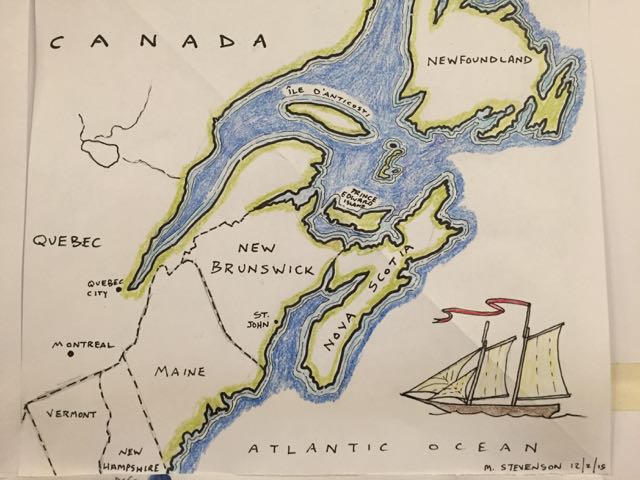 CANADA
NEWFOUNDLAND
ÎLE D'ANTICOSTI
PRINCE
EDWARD
ISLAND
QUEBEC
NEW
BRUNSWICK
NOVA SCOTIA
QUEBEC
CITY
ST.
JOHN
MONTREAL
MAINE
VERMONT
NEW
HAMPSHIRE
ATLANTIC OCEAN
M. STEVENSON 12/2/15